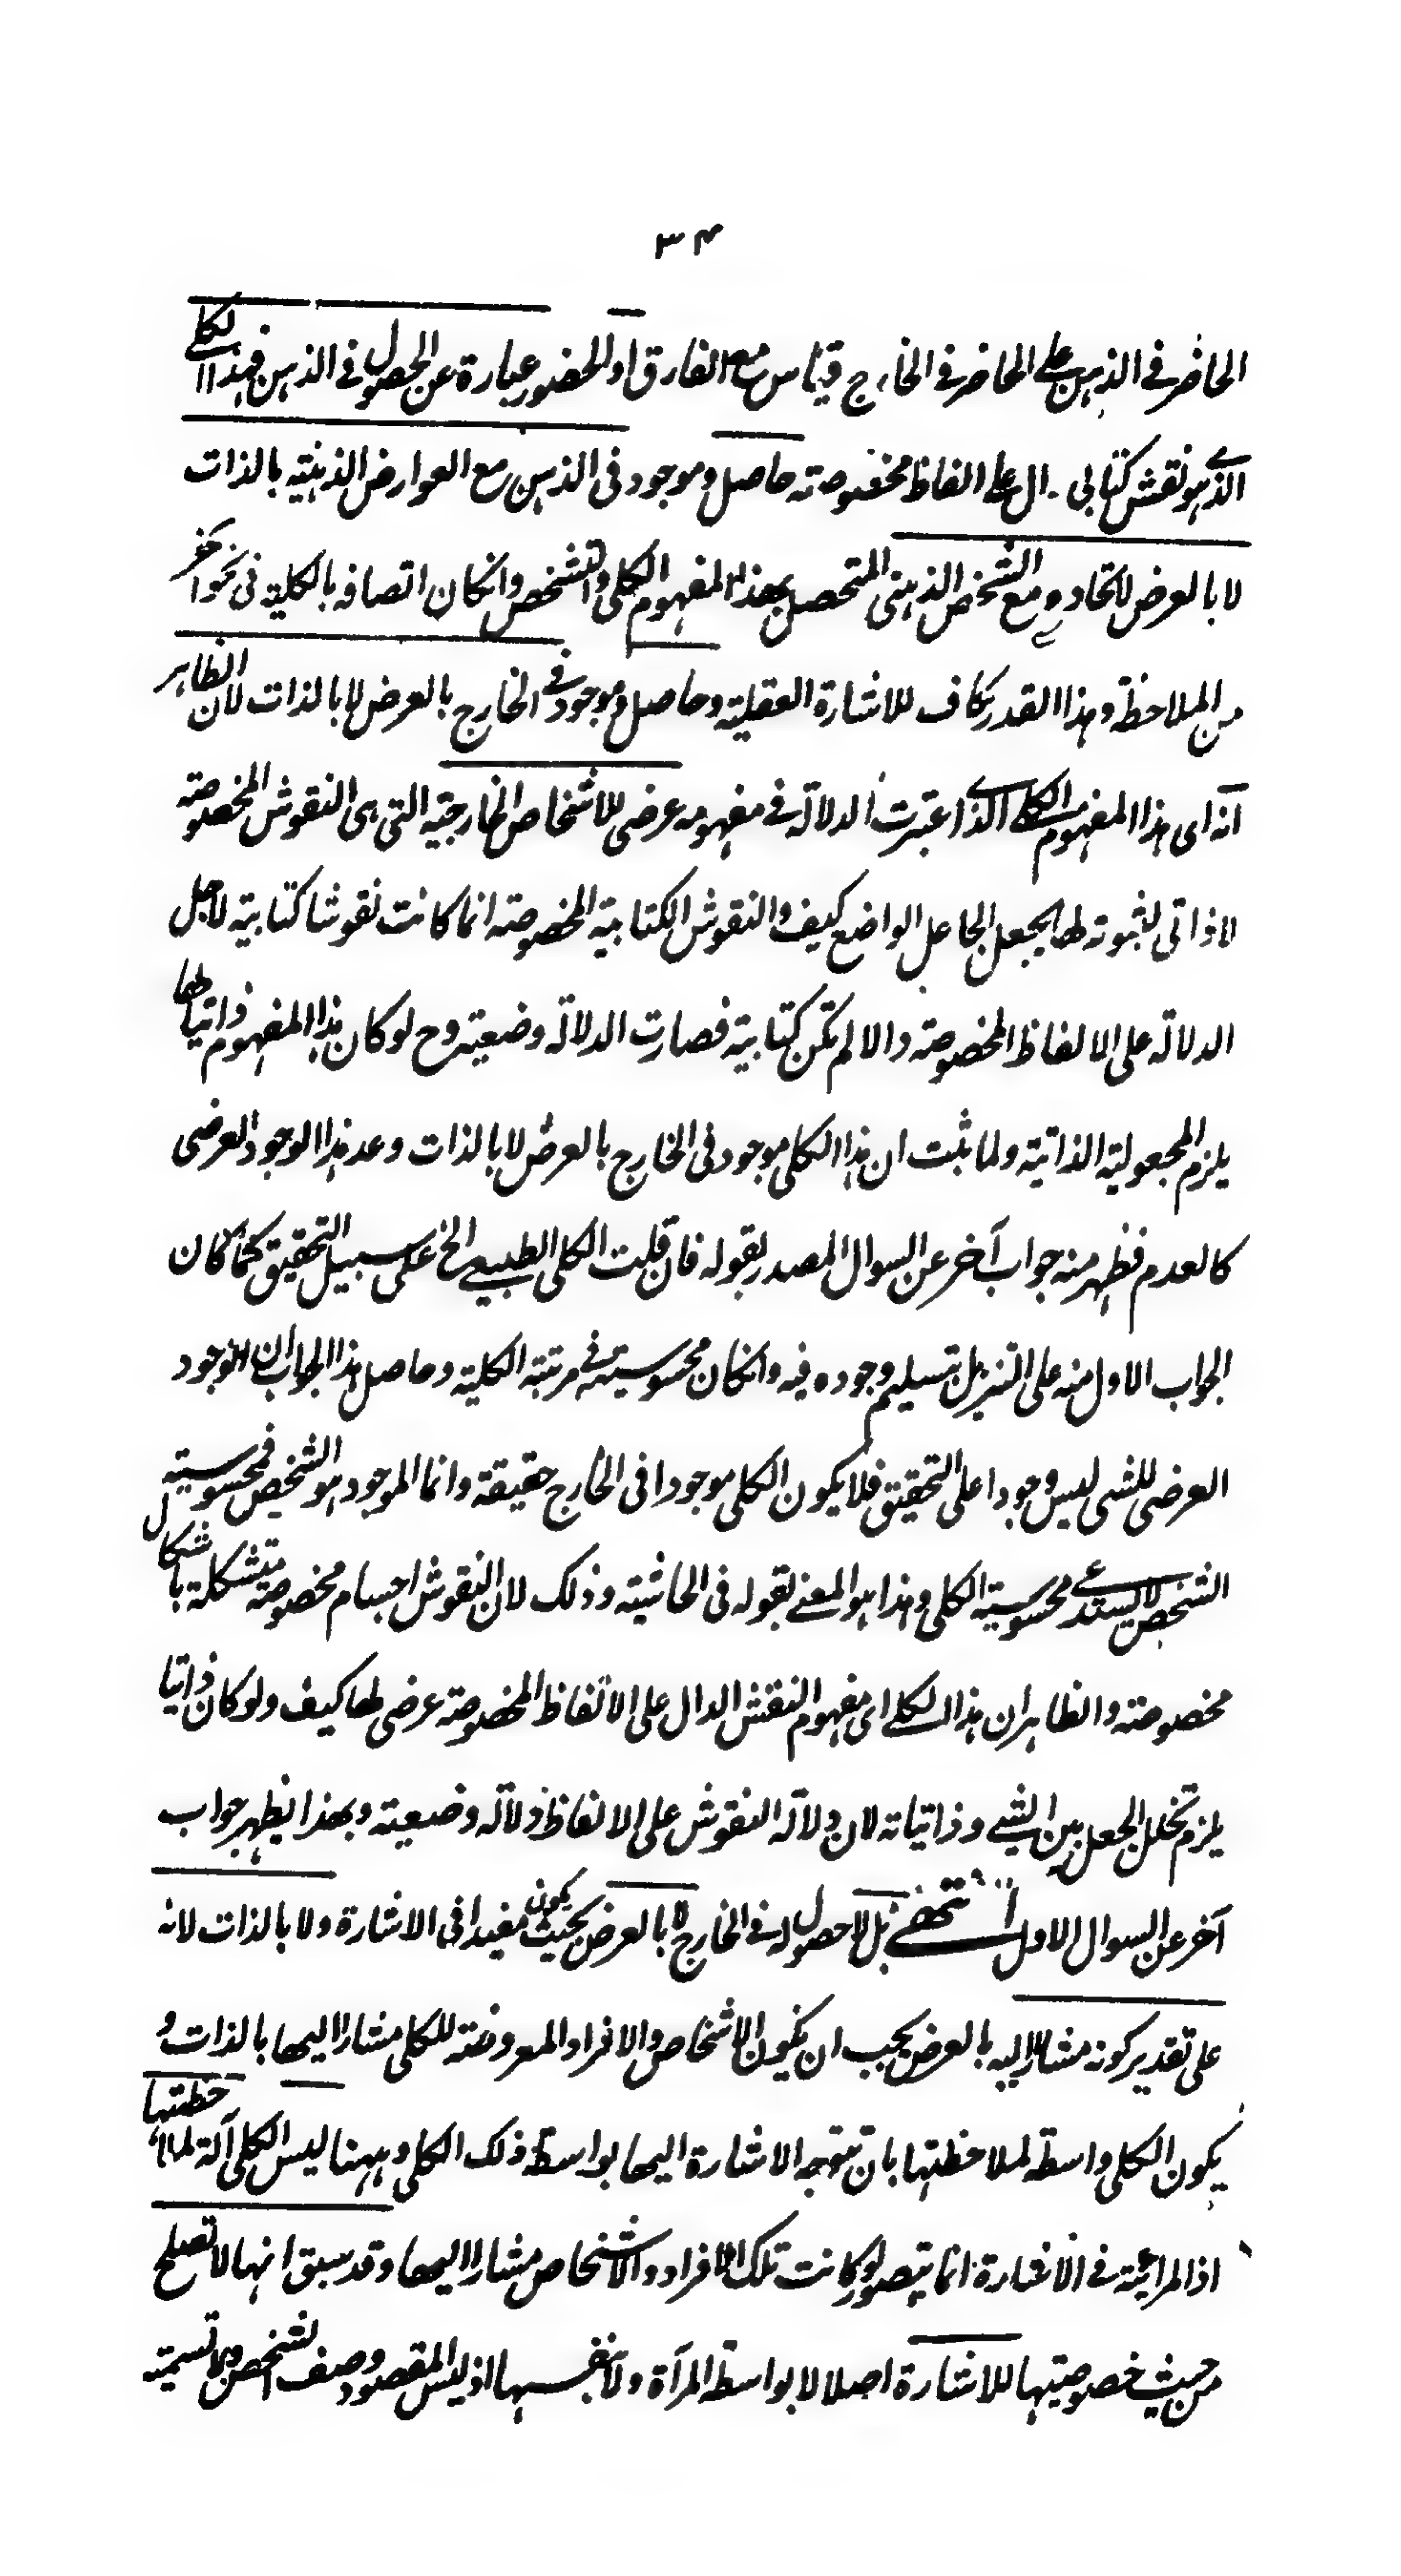 ٣٤
الحاضر فى الذهن على الحاضر فى الخارج قياس مع الفارق او الحضور عبارة عن الحصول فى الذهن فهذا الكلى
الذى هو نقش كتابى دال على الفاظ مخصوصة حاصل وموجود فى الذهن مع العوارض الذهنية بالذات
لا بالعرض لاتحاده مع الشخص الذهنى المتحصل بهذا المفهوم الكلى والتشخص وانكان اتصافه بالكلية فى نحو آخر
من الملاحظة وهذا القدر كاف للاشارة العقلية وحاصل وموجود فى الخارج بالعرض لا بالذات لان الظاهر
انه اى هذا المفهوم الكلى الذى اعتبرت الدلالة فى مفهومه عرضى للاشخاص الخارجية التى هى النقوش المخصوصة
لا ذاتى لثبوته لها بجعل الجاعل الواضع كيف والنقوش الكتابية المخصوصة انما كانت نقوشا كتابية لاجل
الدلالة على الالفاظ المخصوصة والا لم تكن كتابية فصارت الدلالة وضعية وح لو كان هذا المفهوم ذاتيا لها
يلزم المجعولية الذاتية ولما ثبت ان هذا الكلى موجود فى الخارج بالعرض لا بالذات وعد هذا الوجود العرضى
كالعدم فظهر منه جواب آخر عن السوال المصدر بقوله فان قلت الكلى الطبيعى الخ على سبيل التحقيق كما كان
الجواب الاول منه على التنزيل بتسليم وجوده فيه وانكان محسوسيته فى مرتبة الكلية وحاصل هذا الجواب ان الوجود
العرضى للشى ليس وجودا على التحقيق فلا يكون الكلى موجودا فى الخارج حقيقة وانما الموجود هو الشخص فمحسوسية
الشخص لا يستدعى محسوسية الكلى وهذا هو المعنى بقوله فى الحاشية وذلك لان النقوش اجسام مخصوصة متشكلة باشكال
مخصوصة والظاهر ان هذا الكلى اى مفهوم النقش الدال على الالفاظ المخصوصة عرضى لها كيف ولو كان ذاتيا
يلزم تخلل الجعل بين الشى وذاتياته لان دلالة النقوش على الالفاظ دلالة وضعية وبهذا يظهر جواب
آخر عن السوال الاول انتهى بل لا حصول له فى الخارج لا بالعرض بحيث يكون مفيدا فى الاشارة ولا بالذات لانه
على تقدير كونه مشارا اليه بالعرض يجب ان يكون الاشخاص والافراد المعروضة للكلى مشارا اليها بالذات و
يكون الكلى واسطة لملاحظتها بان تتوجه الاشارة اليها بواسطة ذلك الكلى وههنا ليس الكلى آلة لملاحظتها
اذ المراتية فى الاشارة انما يتصور لو كانت تلك الافراد والاشخاص مشارا اليها وقد سبق انها لا تصلح
من حيث خصوصيتها للاشارة اصلا لا بواسطة المرآة ولا بنفسها اذ ليس المقصود وصف الشخص ولا تسمية